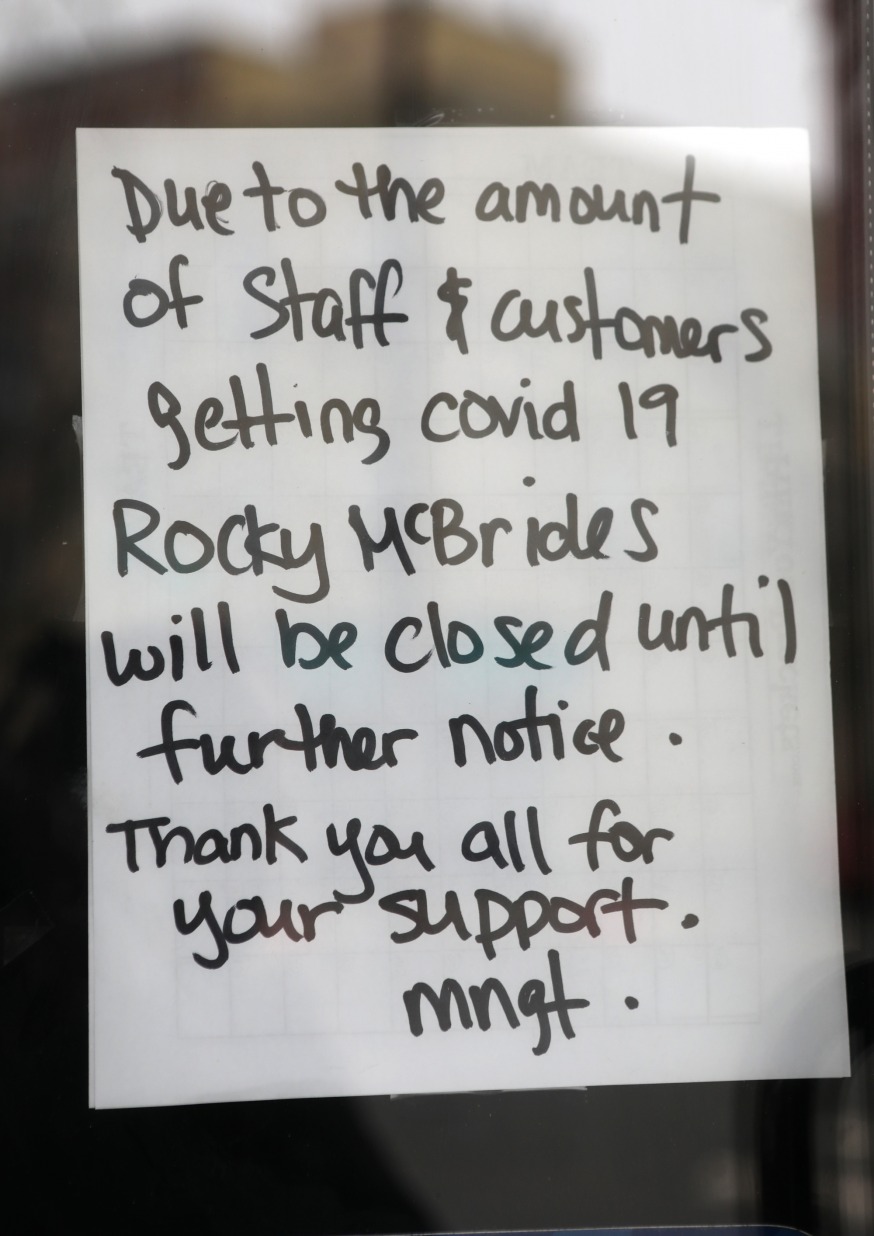 Due to the amount
of Staff & customers
getting covid 19
Rocky McBrides
will be closed until
further notice.
Thank you all for
your support.
mngt.